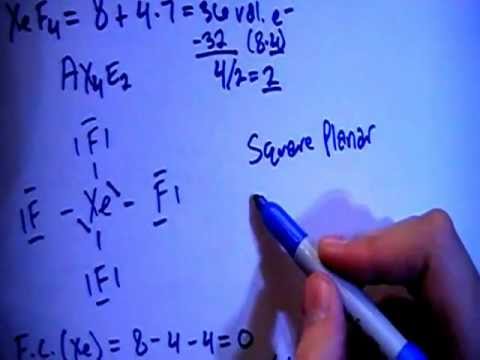 XeF4 = 8 + 4·7 = 36 val. e-
-32 (8·4)
4/2 = 2
AX4E2
F
Square Planar
F Xe F
F
F.C.(Xe) = 8 - 4 - 4 = 0